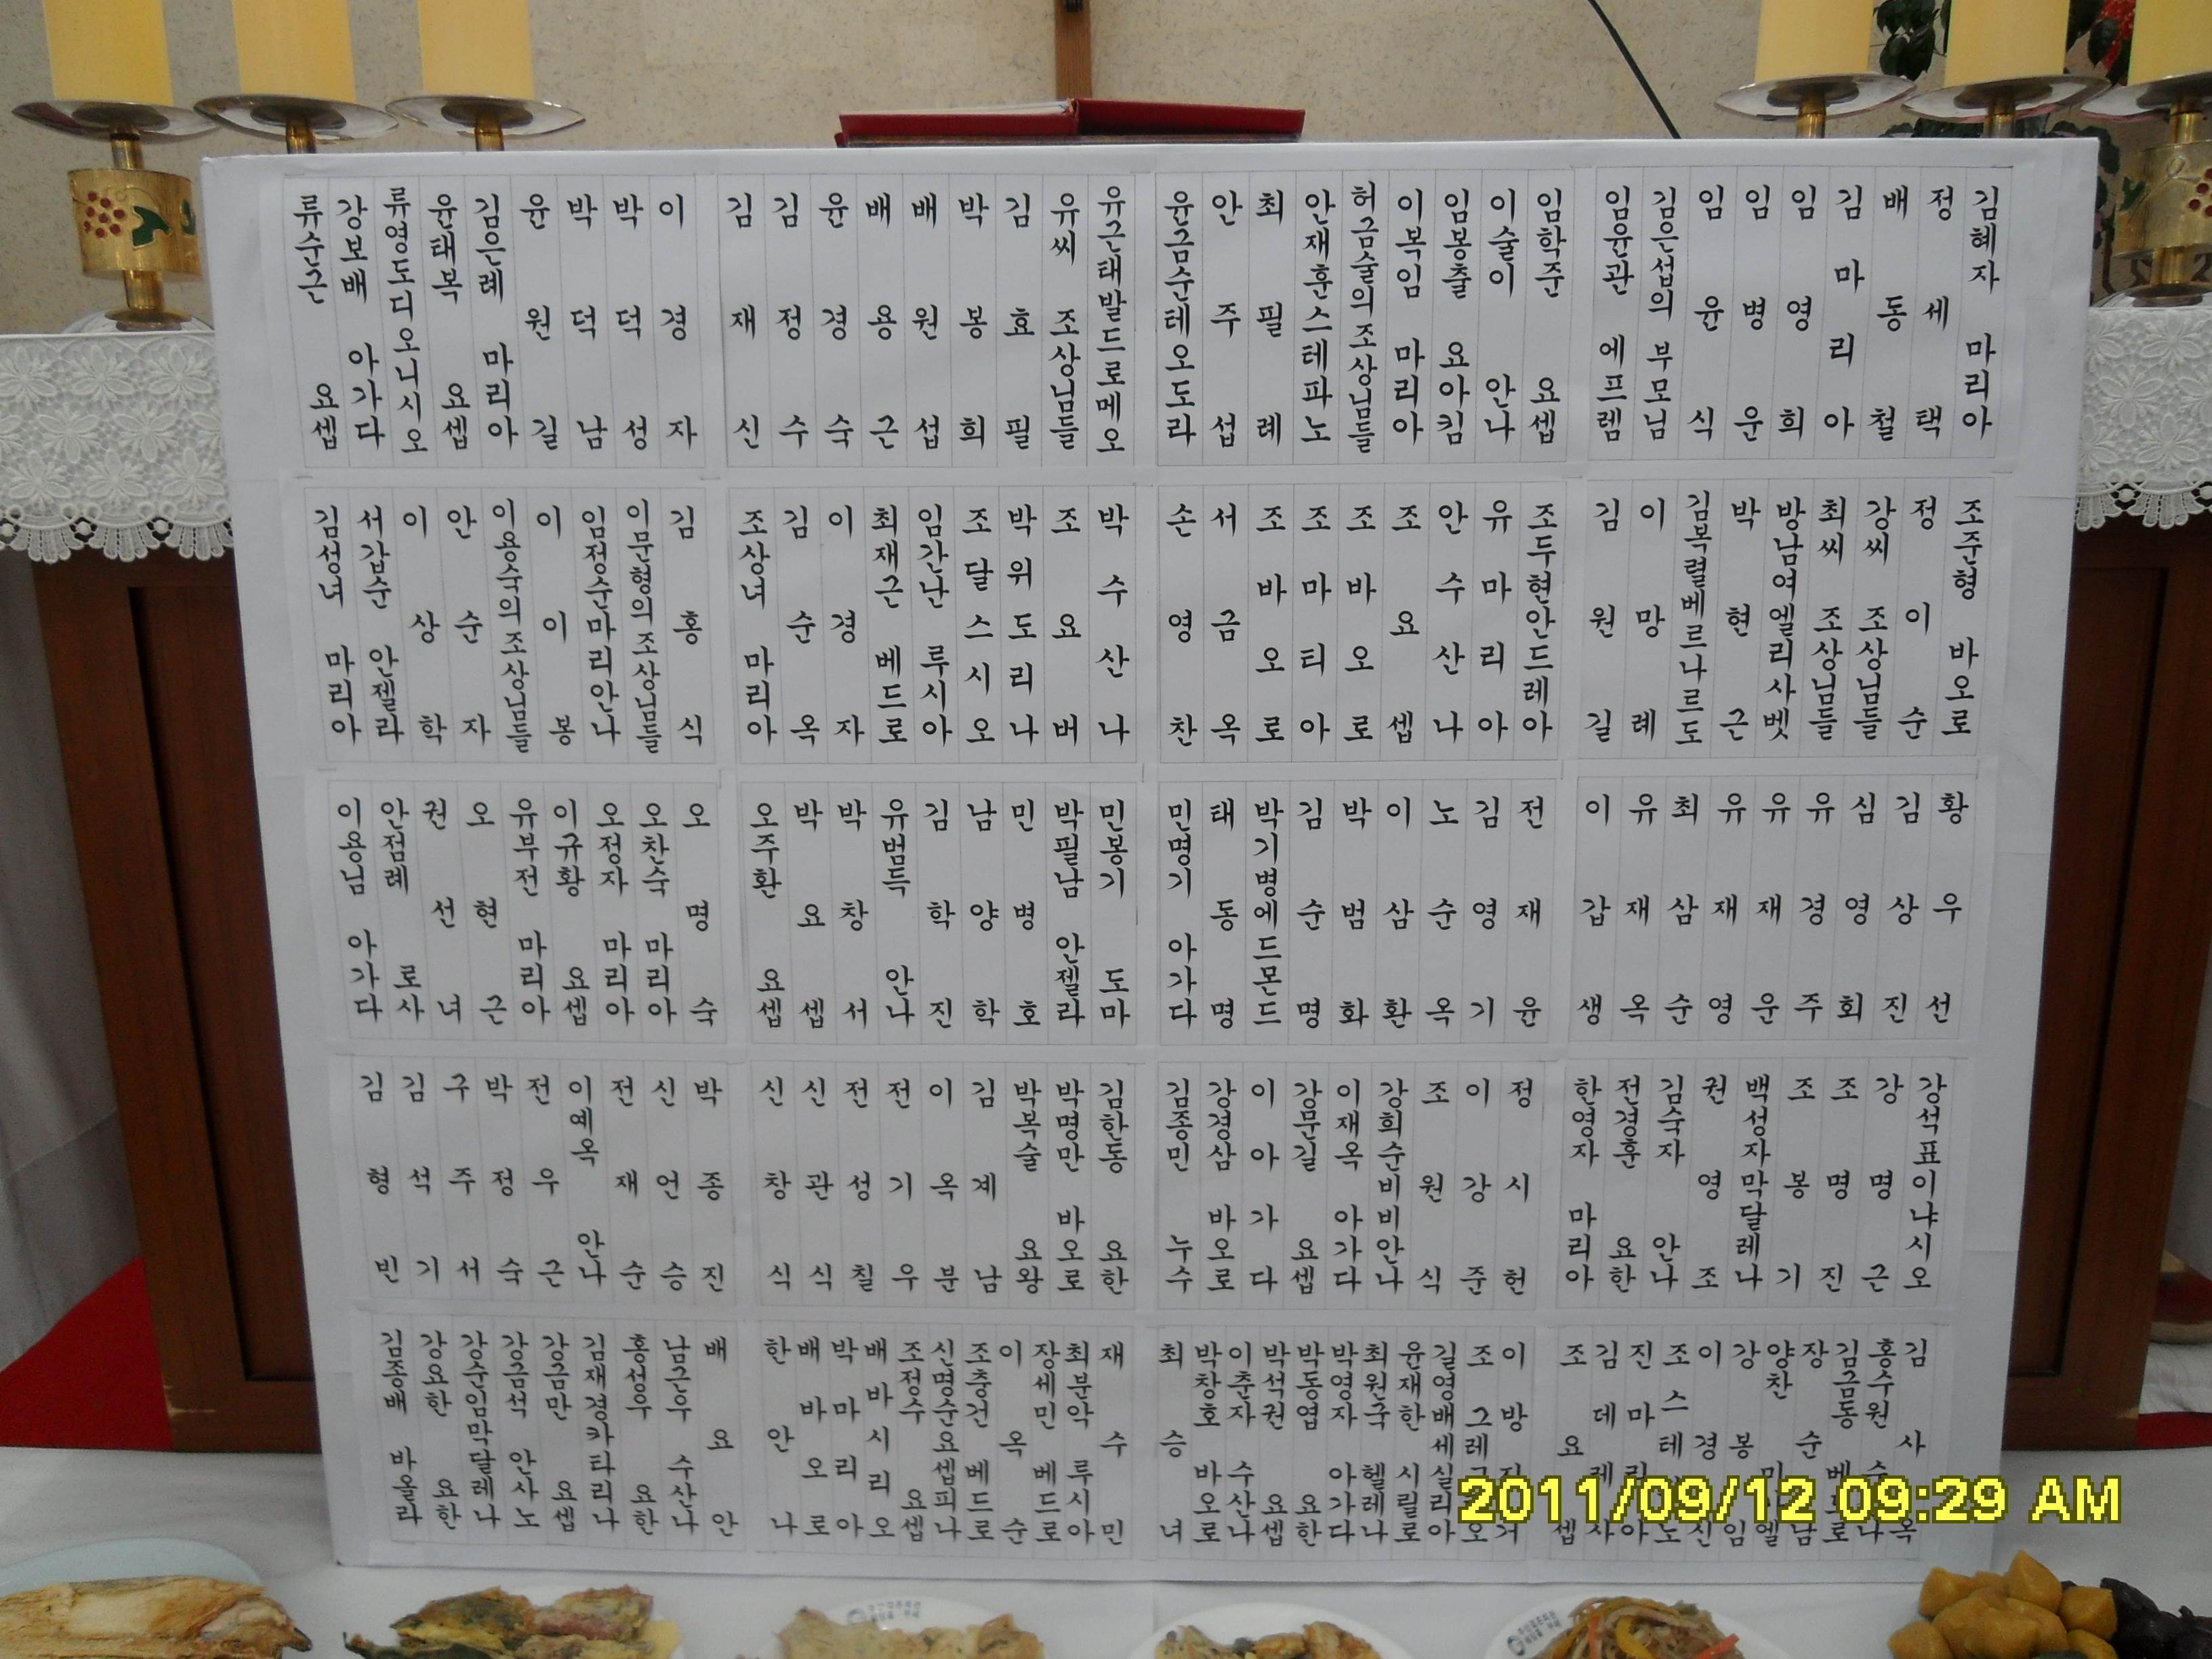 김혜자 마리아
정세택
배동철
김마리아
임영희
임병운
임윤식
김은섭의 부모님
임윤관 에프렘
임학준 요셉
이술이 안나
임봉출 요아킴
이복임 마리아
허금술의조상님들
안재훈스테파노
최필례
안주섭
윤금순테오도라
유근태발드로메오
유씨 조상님들
김효필
박봉희
배원섭
배용근
윤경숙
김정수
김재신
이경자
박덕성
박덕남
윤원길
김은례 마리아
윤태복 요셉
류영도디오니시오
강보배 아가다
류순근 요셉
조준형 바오로
정이순
강씨 조상님들
최씨 조상님들
방남여엘리사벳
박현근
김복렬베르나르도
이망례
김원길
조두현안드레아
유마리아
안수산나
조요셉
조바오로
조마티아
조바오로
서금옥
손영찬
박수산나
조요버
박위도리나
조달스시오
임간난 루시아
최재근 베드로
이경자
김순옥
조상녀 마리아
김홍식
이문형의조상님들
임정순마리안나
이이봉
이용숙의조상님들
안순자
이상학
서갑순 안젤라
김성녀 마리아
황우선
김상진
심영회
유경주
유재운
유재영
최삼순
유재옥
이갑생
전재윤
김영기
노순옥
이삼환
박범화
김순명
박기병에드몬드
태동명
민명기 아가다
민봉기 도마
박필남 안젤라
민병호
남양학
김학진
유범득 안나
박창서
박요셉
오주환 요셉
오명숙
오찬숙 마리아
오정자 마리아
이규황 요셉
유부전 마리아
오현근
권선녀
안점례 로사
이용님 아가다
강석표이냐시오
강명근
조명진
조봉기
백성자막달레나
권영조
김숙자 안나
전경훈 요한
한영자 마리아
정시헌
이강준
조원식
강희순비비안나
이재옥 아가다
강문길 요셉
이아가다
강경삼 바오로
김종민 누수
김한동 요한
박명만 바오로
박복술 요왕
김계남
이옥분
전기우
전성칠
신관식
신창식
박종진
신언승
전재순
이예옥 안나
전우근
박정숙
구주서
김석기
김형빈
김사옥
홍수원
김금동
장순남
양찬
강봉임
이경신
조스테
진마
김데레사
조요셉
이방
조그레
길영배세실리아
윤재한 시릴로
최원국 헬레나
박영자 아가다
박동엽 요한
박석권 요셉
이춘자 수산나
박창호 바오로
최승녀
재수민
최분악 루시아
장세민 베드로
이옥순
조충건 베드로
신명순요셉피나
조정수 요셉
배바시리오
박마리아
배바오로
한안나
배요안
남근우 수산나
홍성우 요한
김재경카타리나
강금만 요셉
강금석 안사노
강순임막달레나
강요한 요한
김종배 바울라
2011/09/12 09:29 AM